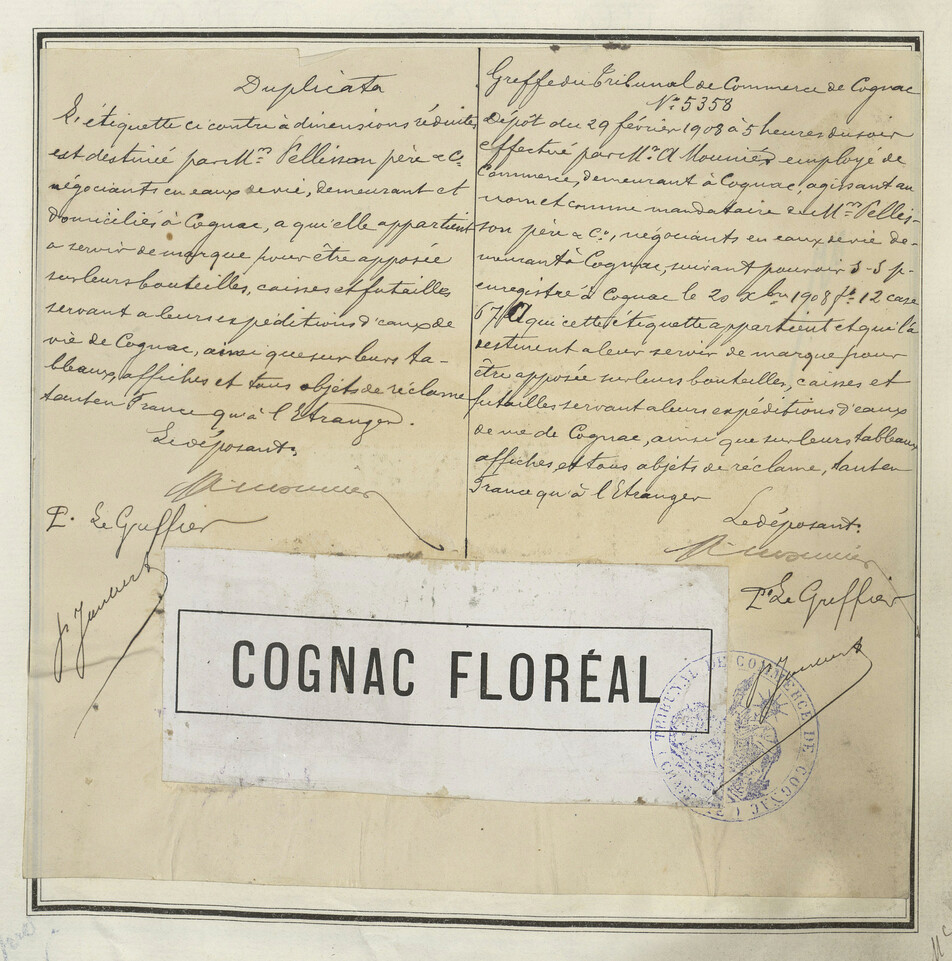 Duplicata
L'étiquette ci contre à dimensions réduites
est destinée par Mrs Pellisson père & Cie
négociants en eaux de vie, demeurant et
domiciliés à Cognac, a qu'elle appartient
a servir de marque pour être apposée
sur leurs bouteilles, caisses et futailles
servant a leurs expéditions d'eaux de
vie de Cognac, ainsi que sur leurs ta-
bleaux, affiches et tous objets de réclame
tant en France qu'à l'Etranger.
Le déposant.
A Mounier
Po. Le Greffier
Greffe du Tribunal de Commerce de Cognac
No 5358
Dépot du 29 février 1908 à 5 heures du soir
effectué par Mr A Mounier employé de
Commerce, demeurant à Cognac, agissant au
nom et comme mandataire de Mrs Pellis-
son père & Co, négociants en eaux de vie de-
meurant à Cognac, suivant pouvoir s-s p.
enregistré à Cognac le 20 Xbre 1908 fo 12 case
67 A qui cette étiquette appartient et qui la
destinent a leur servir de marque pour
être apposée sur leurs bouteilles, caisses et
futailles servant a leurs expéditions d'eaux
de vie de Cognac, ainsi que sur leurs tableaux
affiches, et tous objets de réclame, tant en
France qu'à l'Etranger
Le déposant.
A Mounier
Po Le Greffier
COGNAC FLORÉAL
TRIBUNAL DE COMMERCE DE COGNAC